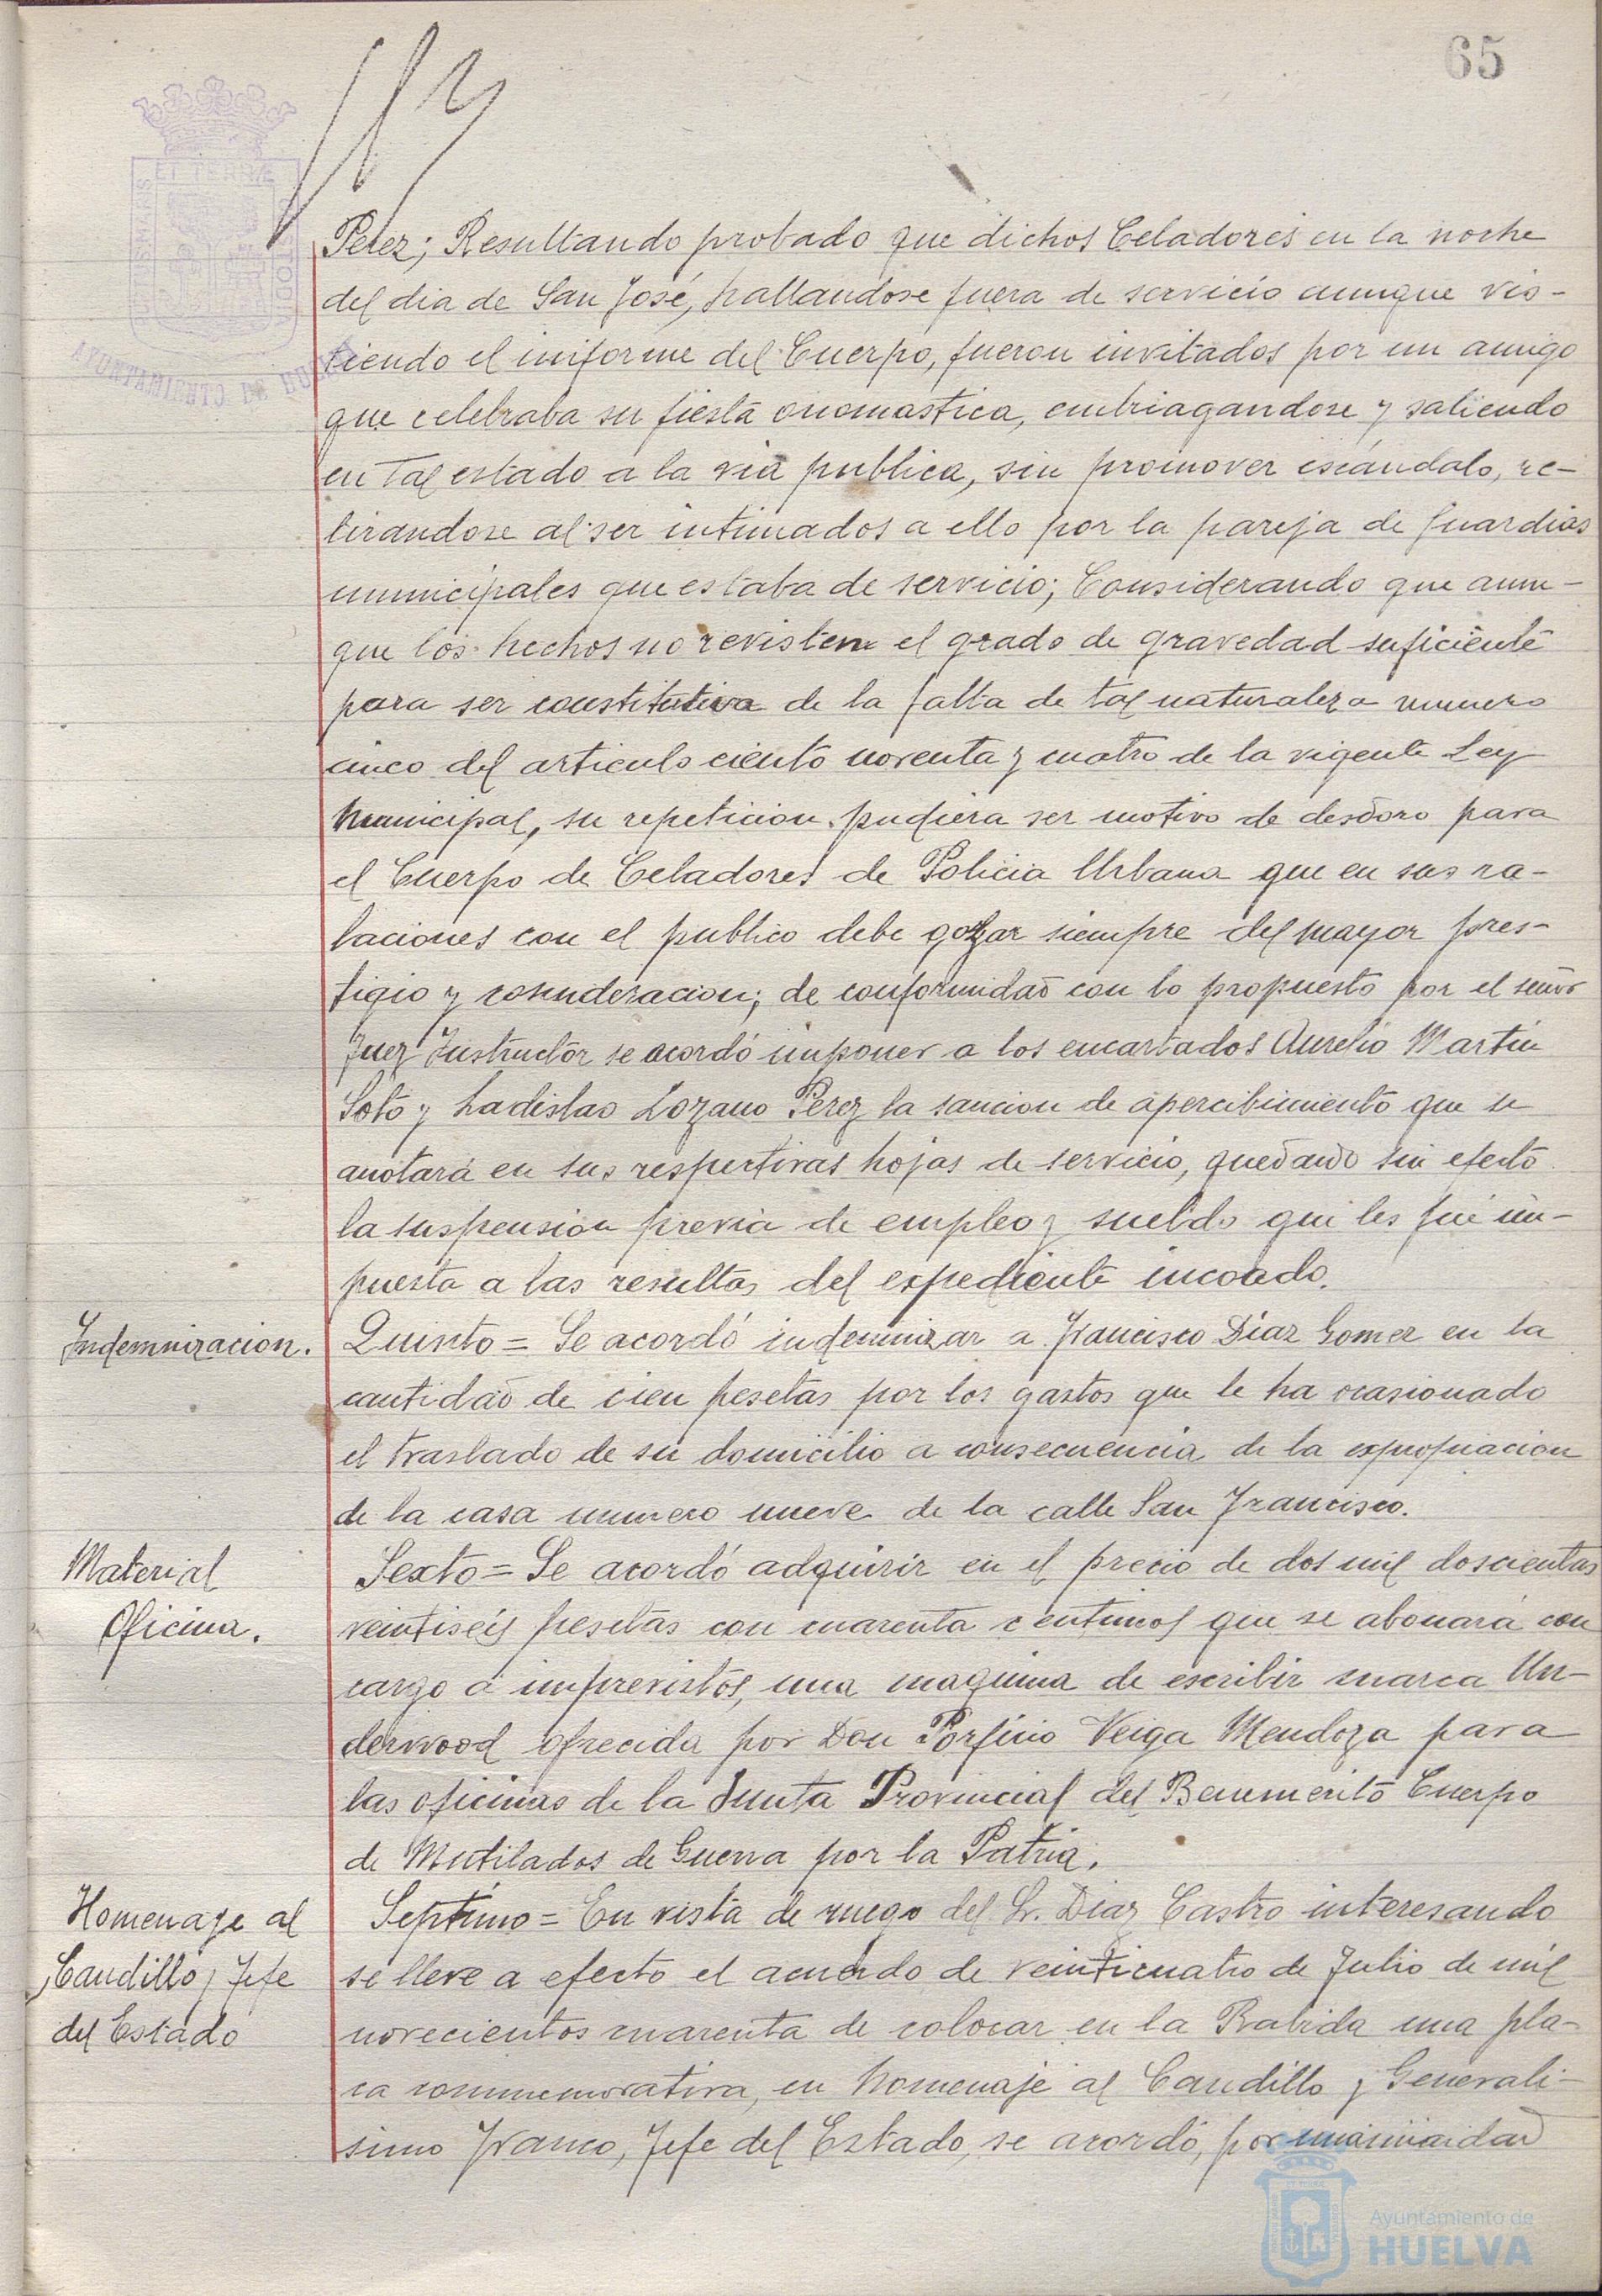 65
ET TERRÆ
CUSTODIA
AYUNTAMIENTO DE HUELVA
Perez; Resultando probado que dichos Celadores en la noche
del dia de San José, hallandose fuera de servicio aunque vis-
tiendo el uniforme del Cuerpo, fueron invitados por un amigo
que celebraba su fiesta onomastica, embriagandose y saliendo
en tal estado a la via publica, sin promover escándalo, re-
tirandose al ser intimados a ello por la pareja de guardias
municipales que estaba de servicio; Considerando que aun-
que los hechos no revisten el grado de gravedad suficiente
para ser constitutiva de la falta de tal naturaleza numero
cinco del articulo ciento noventa y cuatro de la vigente Ley
Municipal, su repeticion pudiera ser motivo de desdoro para
el Cuerpo de Celadores de Policia Urbana que en sus re-
laciones con el publico debe gozar siempre del mayor pres-
tigio y consideracion; de conformidad con lo propuesto por el señor
Juez Instructor se acordó imponer a los encartados Aurelio Martin
Soto y Ladislao Lozano Perez la sancion de apercibimiento que se
anotará en sus respectivas hojas de servicio, quedando sin efecto
la suspension previa de empleo y sueldo que les fué im-
puesta a las resultas del expediente incoado.
Indemnizacion.
Quinto = Se acordó indemnizar a Francisco Diaz Gomez en la
cantidad de cien pesetas por los gastos que le ha ocasionado
el traslado de su domicilio a consecuencia de la expropiacion
de la casa numero nueve de la calle San Francisco.
Material
Oficina.
Sexto = Se acordó adquirir en el precio de dos mil doscientas
veintiseis pesetas con cuarenta centimos que se abonará con
cargo a imprevistos, una maquina de escribir marca Un-
derwood ofrecida por Don Porfirio Veiga Mendoza para
las oficinas de la Junta Provincial del Benemerito Cuerpo
de Mutilados de Guerra por la Patria.
Homenaje al
Caudillo y Jefe
del Estado
Septimo = En vista de ruego del Sr. Diaz Castro interesando
se lleve a efecto el acuerdo de veinticuatro de Julio de mil
novecientos cuarenta de colocar en la Rabida una pla-
ca conmemorativa, en homenaje al Caudillo y Generali-
simo Franco, Jefe del Estado, se acordó, por unanimidad
Ayuntamiento de
HUELVA